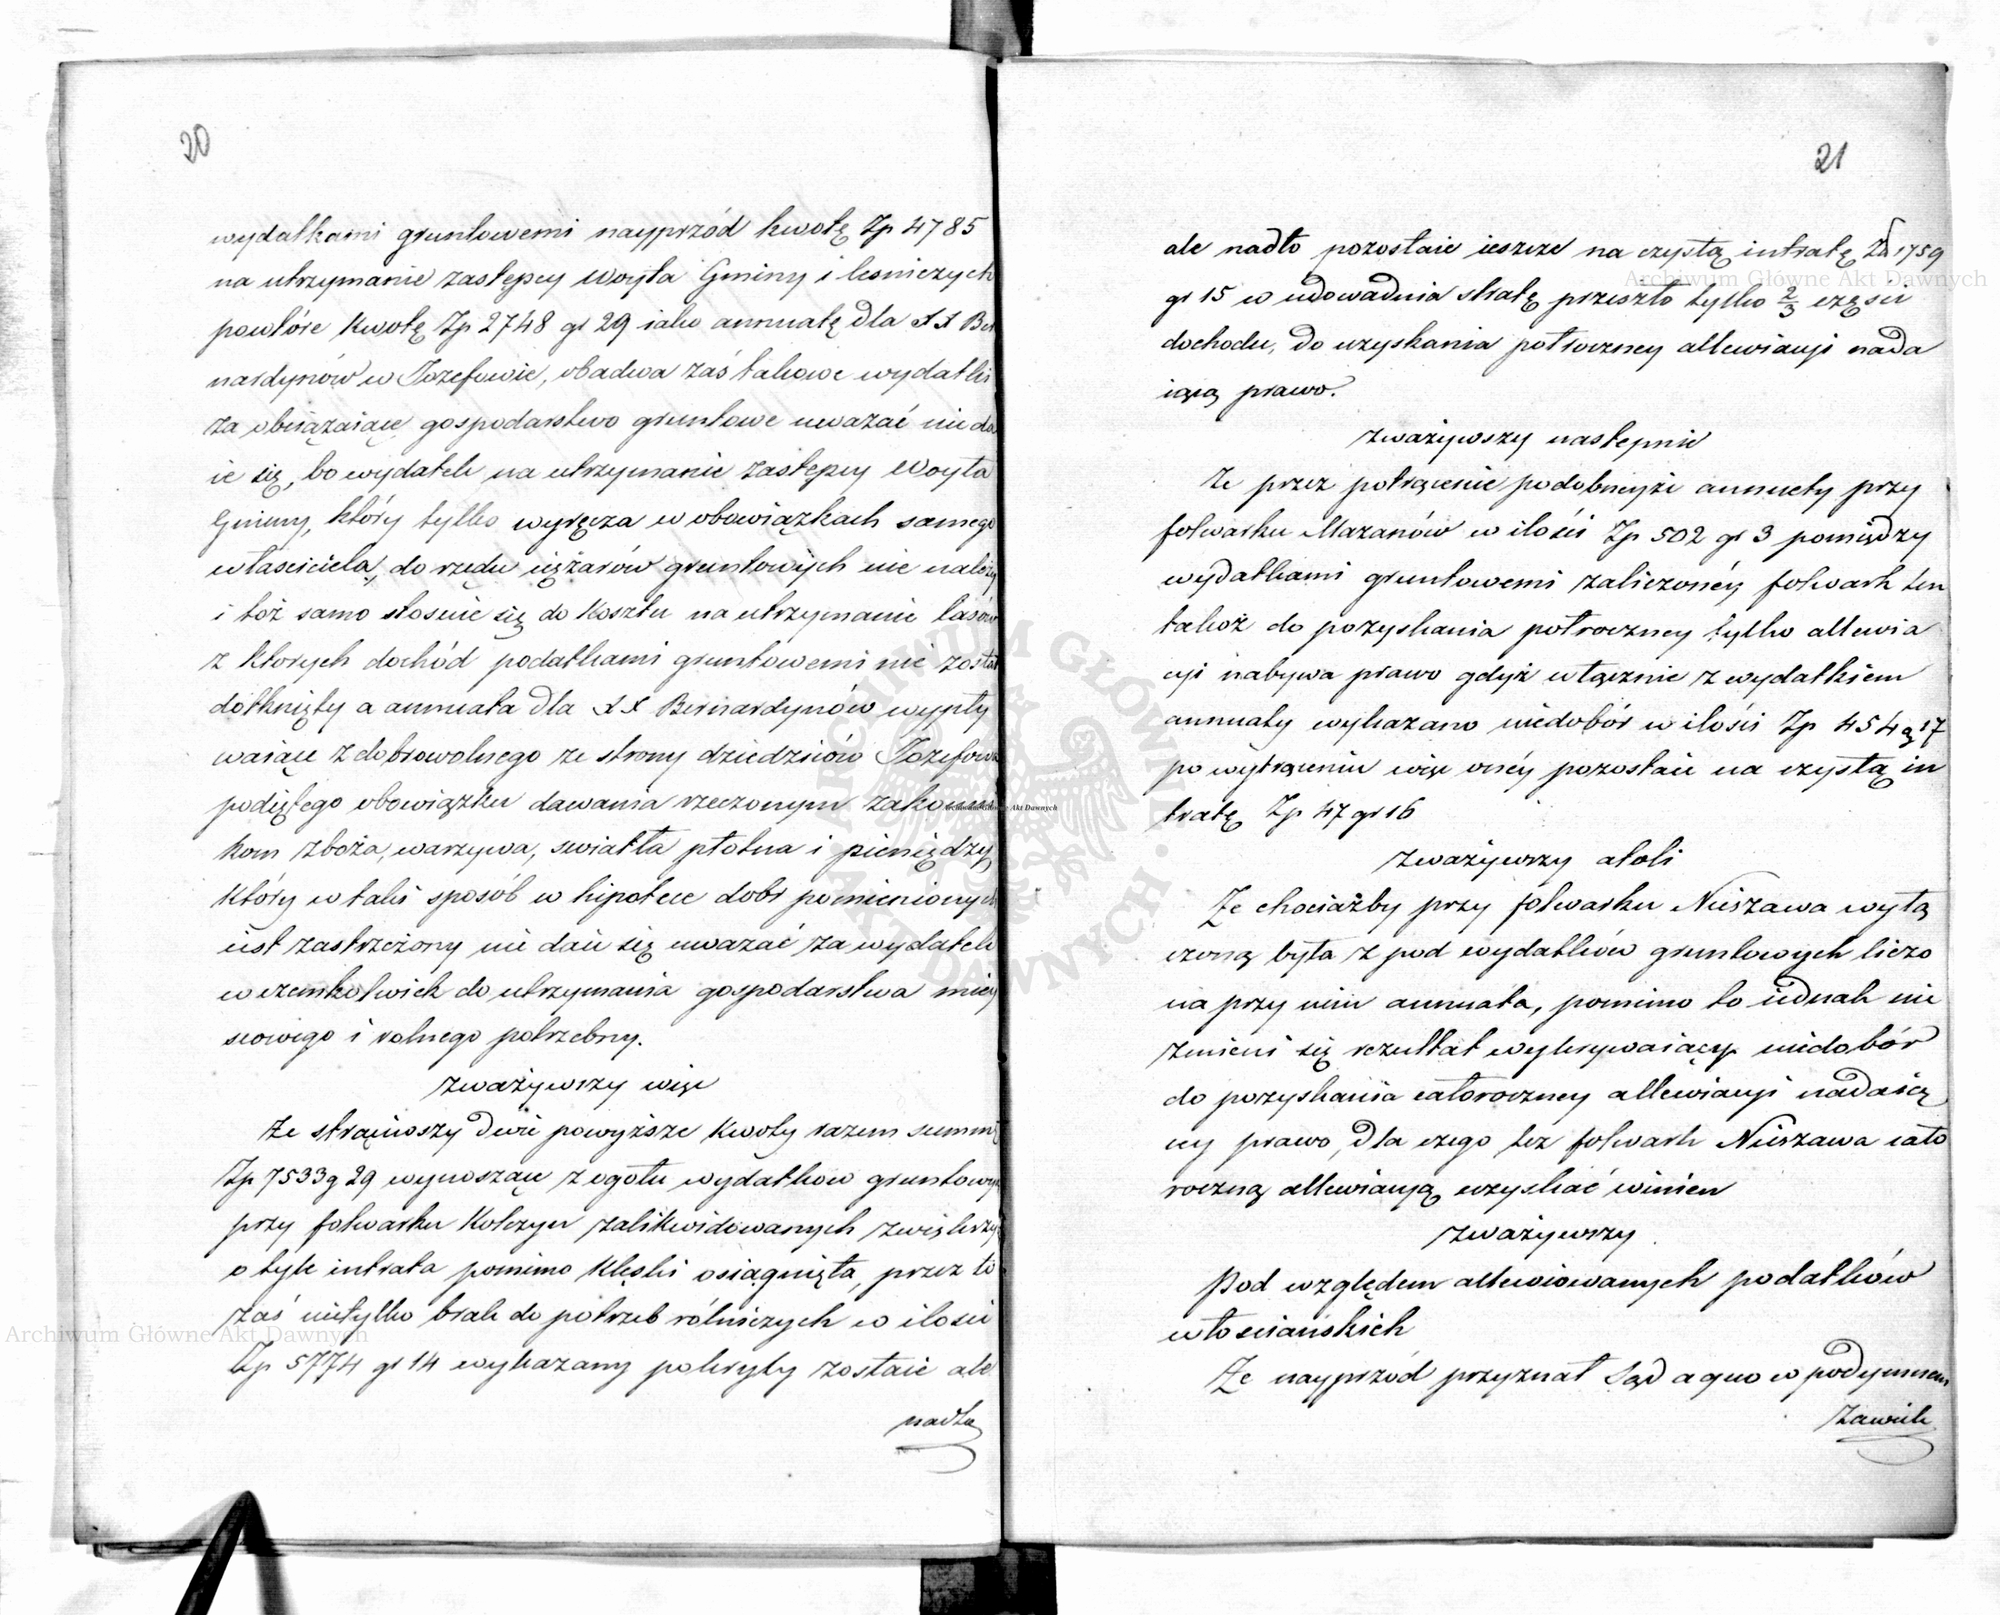 20
wydatkami gruntowemi nayprzód kwotę Zp 4785
na utrzymanie zastępcy Woyta Gminy i leśniczych
powtóre kwotę Zp 2748 gr 29 iako annuatę dla XX Ber
nardynów w Jozefowie, obadwa zaś takowe wydatki
za obciążaiące gospodarstwo gruntowe uważać nie da
ie się, bo wydatek na utrzymanie zastępcy Woyta
Gminy, który tylko wyręcza w obowiązkach samego
właściciela, do rzędu ciężarów gruntowych nie należy
i toż samo stosuie się do kosztu na utrzymanie lasów
z których dochód podatkami gruntowemi nie został
dotknięty a annuata dla XX Bernardynów wypły
waiące z dobrowolnego ze strony dziedziców Jozefowa
podiętego obowiązku dawania rzeczonym zakonni
kom zboża, warzywa, swiatła płótna i pieniędzy
który w taki sposób w hipotece dobr pomienionych
iest zastrzeżony nie daie się uważać za wydatek
w czemkolwiek do utrzymania gospodarstwa miey
scowego i rolnego potrzebny.
zważywszy więc
że strąciwszy dwie powyższe kwoty razem summę
Zp 7533 g 29 wynoszące z ogółu wydatkow gruntowych
przy folwarku Kolczyn zalikwidowanych zwiększy
o tyle intrata pomimo klęski osiągnięta, przez to
zaś nietylko brak do potrzeb rólniczych w ilości
Zp 5774 gr 14 wykazany pokryty zostaie ale
nadto
21
ale nadto pozostaie ieszcze na czystą intratę Zł 1759
gr 15 w udowadnia stratę przeszło tylko 2/3 części
dochodu, do uzyskania półroczney allewiacyi nada
iącą prawo.
zważywszy następnie
że przez potrącenie podobneyże annuaty przy
folwarku Mazanów w ilości Zp 502 gr 3 pomiędzy
wydatkami gruntowemi zaliczonéy folwark ten
takoż do pozyskania półroczney tylko allewia
cyi nabywa prawo gdyż włącznie z wydatkiem
annuaty wykazano niedobór w ilości Zp 454 g 17
po wytrąceniu więc onéy pozostaie na czystą in
tratę Zp 47 gr 16
zważywszy atoli
Że chociażby przy folwarku Nieszawa wyłą
czoną była z pod wydatków gruntowych liczo
na przy nim annuata, pomimo to iednak nie
zmieni się rezultat wykrywaiący niedobór
do pozyskania całoroczney allewiacyi nadaiący
cy prawo, dla czego też folwark Nieszawa cało
roczną allewiacyą uzyskać winien
zważywszy
Pod względem allewiowanych podatków
włościańskich
Że nayprzód przyznał Sąd a quo w podymnem